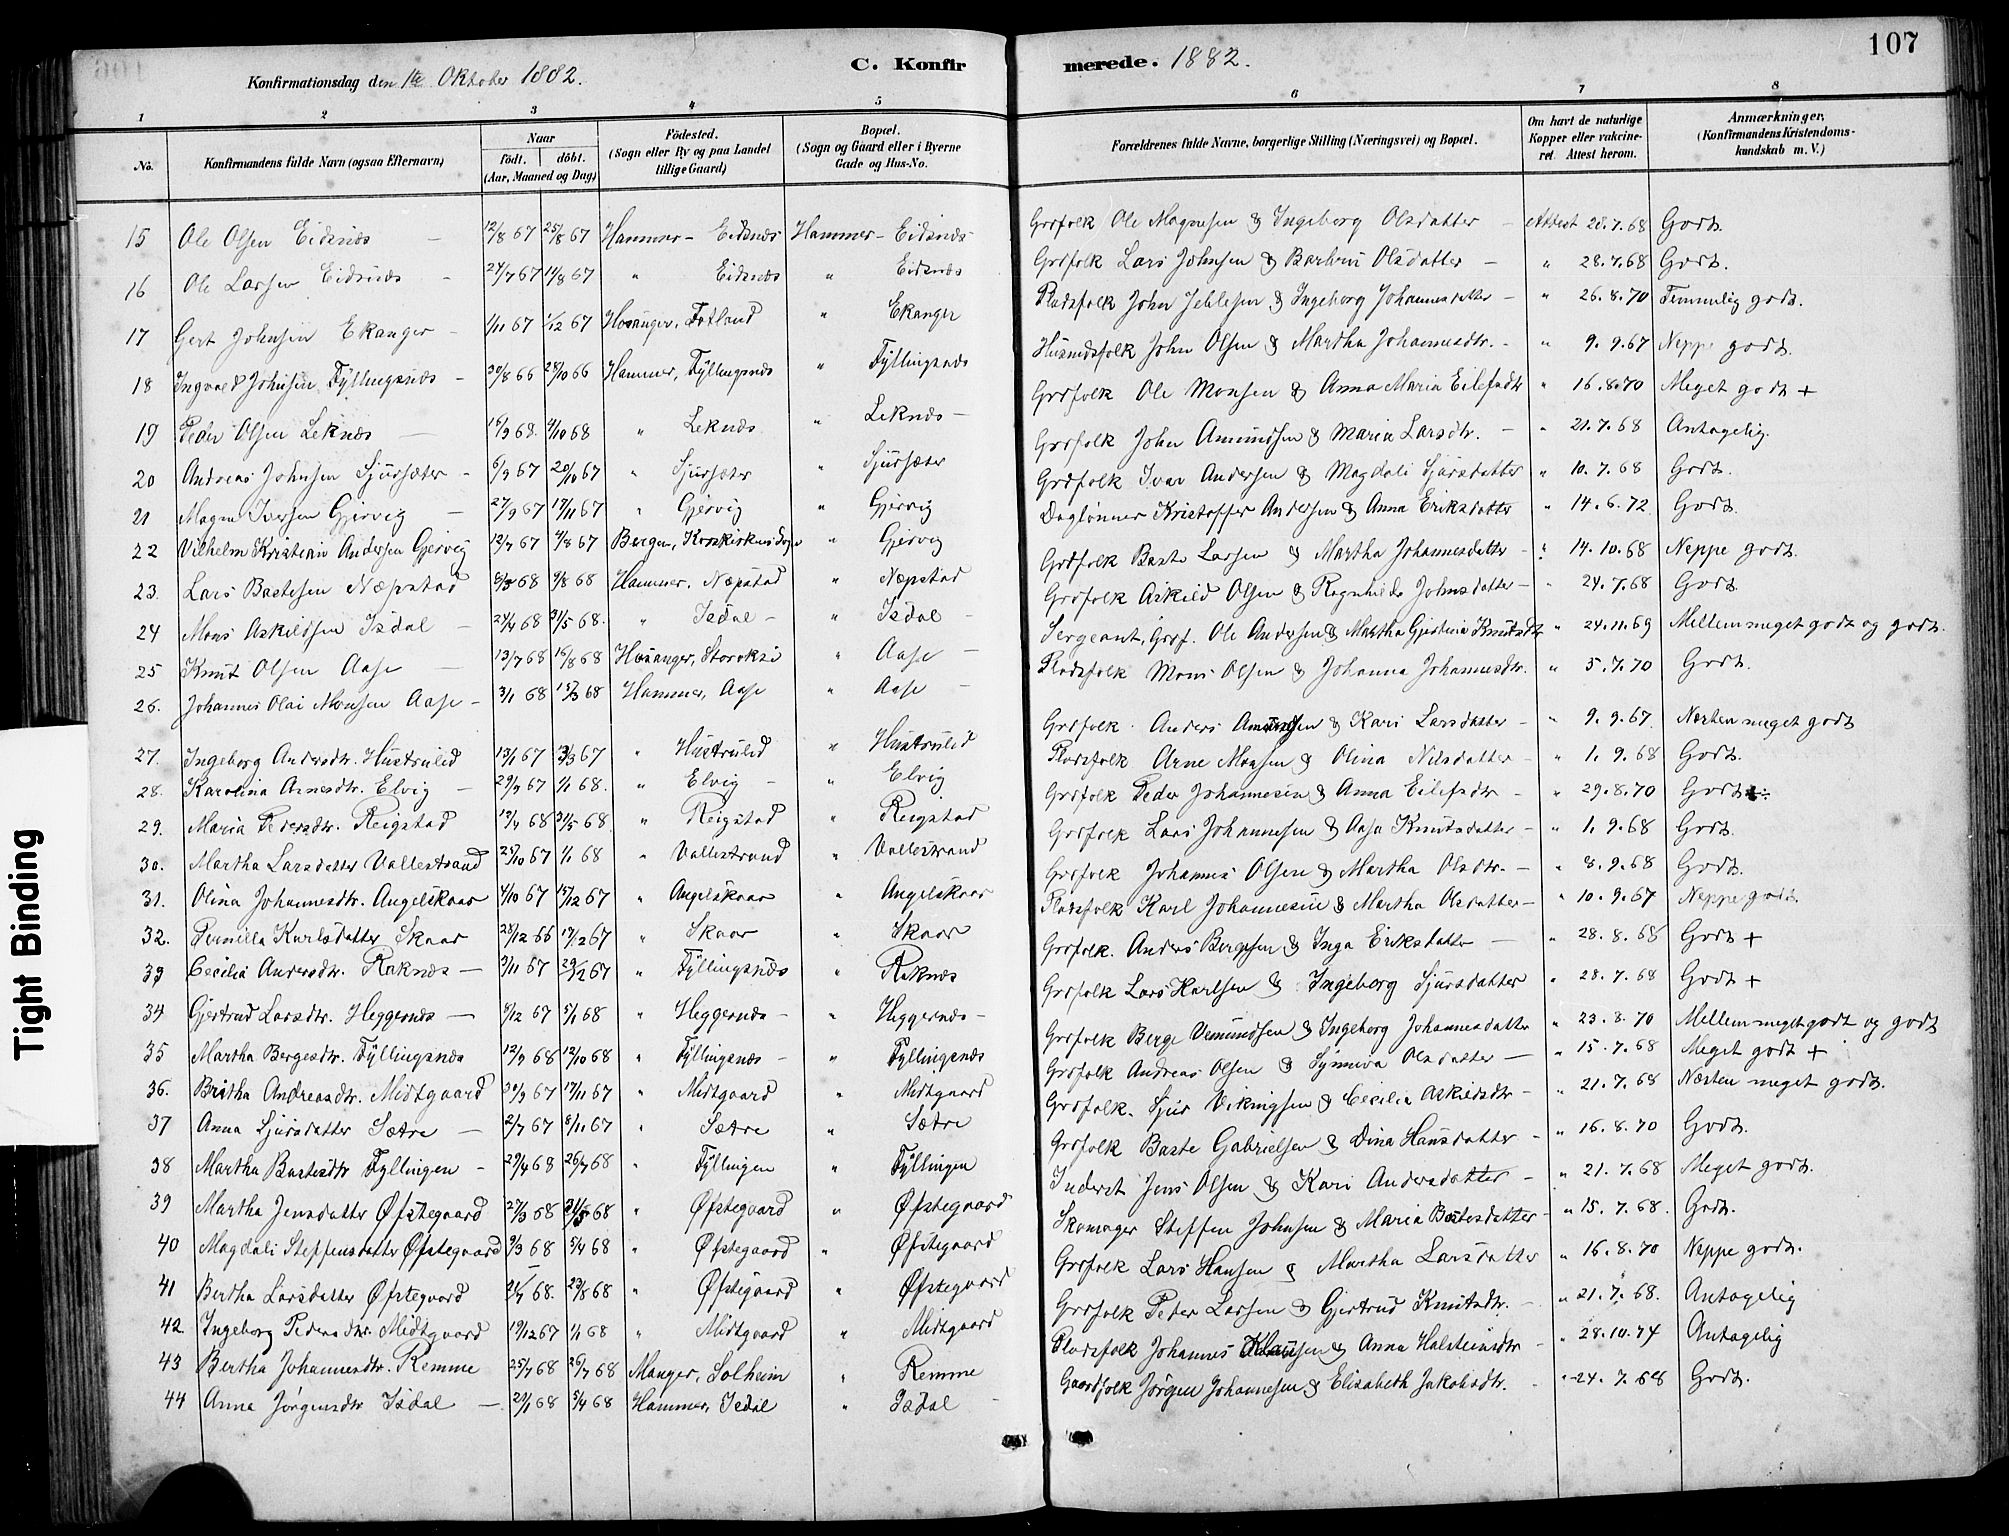 107
Konfirmationsdag den 1te Oktober 1882.
C. Konfirmerede. 1882.
1 2 3 4 5 6 7 8
No. Konfirmandens fulde Navn (ogsaa Efternavn) Naar födt. döbt. (Aar, Maaned og Dag) Födested. (Sogn eller By og paa Landet tillige Gaard) Bopæl. (Sogn og Gaard eller i Byerne Gade og Hus-No. Forældrenes fulde Navne, borgerlige Stilling (Næringsvei) og Bopæl. Om havt de naturlige Kopper eller vakcineret. Attest herom. Anmærkninger, (Konfirmandens Kristendomskundskab m. V.)
15 Ole Olsen Eidsnæs 12/8 67 25/8 67 Hammer - Eidsnæs Hammer - Eidsnæs Grdfolk Ole Magnesen & Ingeborg Olsdatter Attest 28.7.68 Godt.
16 Ole Larsen Eidsnæs 24/7 67 11/8 67 " Eidsnæs " Eidsnæs Grdfolk Lars Johnsen & Barbru Olsdatter " 28.7.68 Godt.
17 Gert Johnsen Ekanger 1/11 67 1/12 67 Hosanger, Fotland " Ekanger Pladsfolk John Jetlesen & Ingeborg Johannesdatter " 26.8.70 Temmelig godt.
18 Ingvald Johnsen Fyllingsnæs 30/8 66 28/10 66 Hammer, Fyllingsnæs " Fyllingsnæs Husmdsfolk John Olsen & Martha Johannesdtr. " 9.9.67 Neppe godt.
19 Peder Olsen Leknæs 16/9 68. 4/10 68 " Leknæs " Leknæs Grdfolk Ole Monsen & Anna Maria Eilefsdtr " 16.8.70 Meget godt +
20 Andreas Johnsen Sjursæter 6/9 67 20/10 67 " Sjursæter " Sjursæter Grdfolk John Amundsen & Maria Larsdtr. " 21.7.68 Antagelig.
21 Magne Iversen Gjervig 27/9 67 17/11 67 " Gjervig " Gjervig Grdfolk Ivar Andersen & Magdali Sjursdatter " 10.7.68 Godt.
22 Vilhelm Kristian Andersen Gjervig 12/7 67 4/8 67 Bergen, Korskirkens Sogn " Gjervig Daglønner Kristoffer Andersen & Anna Eriksdatter " 14.6.72 Godt.
23. Lars Bastesen Næpstad 6/3 68 9/8 68 Hammer, Næpstad " Næpstad Grdfolk Baste Larsen & Martha Johannesdatter " 14.10.68 Neppe godt.
24 Mons Askildsen Isdal 27/4 68 31/5 68. " Isdal " Isdal Grdfolk Askild Olsen & Ragnhilde Johnsdatter " 24.7.68 Godt.
25 Knut Olsen Aase 13/7 68 16/8 68 Hosanger, " Aase Sergeant, Grdf. Ole Andersen & Martha Gjertina Knutsdtr " 24.11.69 Mellem meget godt og godt.
26. Johannes Olai Monsen Aase 3/1 68 15/3 68 Hammer, Aase " Aase Pladsfolk Mons Olsen & Johanna Johannesdtr. " 5.7.70 Godt.
27. Ingeborg Andersdtr. Hustrulid 13/1 67 3/3 67 " Hustrulid " Hustrulid Grdfolk Anders Amundsen & Kari Larsdatter " 9.9.67. Næsten meget godt
28. Karolina Arnesdtr. Elvig 29/9 67 1/1 68. " Elvig " Elvig Pladsfolk Arne Monsen & Olina Nilsdatter " 1.9.68 Godt.
29. Maria Pedersdtr. Reigstad 19/4 68 31/5 68. " Reigstad " Reigstad Grdfolk Peder Johannesen & Anna Eilefsdtr " 29.8.70 Godt
30. Martha Larsdatter Vallestrand 25/10 67 1/1 68 " Vallestrand " Vallestrand Grdfolk Lars Johannesen & Aasa Knutsdatter " 1.9.68 Godt.
31. Olina Johannesdtr. Angelskaar 4/10 67 15/12 67 " Angelskaar " Angelskaar Grdfolk Johannes Olsen & Martha Olsdtr. " 8.9.68 Godt.
32. Pernilla Karlsdatter Skaar 23/12 66 17/2 67 " Skaar " Skaar Pladsfolk Karl Johannesen & Martha Olsdatter " 10.9.67 Neppe godt.
33 Cecilia Andersdtr. Raknæs 3/11 67 29/12 67 " Fyllingsnæs " Raknæs Grdfolk. Anders Bergesen & Inga Eriksdatter " 28.8.68 Godt +
34 Gjertrud Larsdtr. Heggernæs 8/12 67 5/1 68 " Heggernæs " Heggernæs Grdfolk Lars Karlsen & Ingeborg Sjursdatter " 28.7.68 Godt +
35 Martha Bergesdtr. Fyllingsnæs 12/9 68 12/10 68 " Fyllingsnæs " Fyllingsnæs Grdfolk Berge Vemundsen & Ingeborg Johannesdatter " 23.8.70 Mellem meget godt og godt
36. Britha Andreasdtr. Midtgaard 30/9 67 17/11 67 " Midtgaard " Midtgaard Grdfolk Andreas Olsen & Synneva Olsdatter " 15.7.68 Meget godt +
37 Anna Sjursdatter Sætre 2/7 67 8/11 67 " Sætre " Sætre Grdfolk. Sjur Vikingsen & Cecilia Askildsdtr " 21.7.68 Næsten meget godt.
38 Martha Bastesdtr Fyllingen 29/4 68 26/7 68 " Fyllingen " Fyllingen Grdfolk Baste Gabrielsen & Dina Hansdatter " 16.8.70 Godt.
39 Martha Jensdatter Øfstegaard 27/3 68 31/5 68 " Øfstegaard " Øfstegaard Inderst Jens Olsen & Kari Andersdatter " 21.7.68 Meget godt.
40 Magdali Steffensdatter Øfstegaard 9/3 68 5/4 68 " Øfstegaard " Øfstegaard Skomager Steffen Johnsen & Maria Bastesdatter " 15.7.68. Godt.
41 Bertha Larsdatter Øfstegaard 21/7 68. 23/8 68 " Øfstegaard " Øfstegaard Grdfolk Lars Hansen & Martha Larsdatter " 16.8.70 Neppe godt.
42. Ingeborg Pedersdtr. Midtgaard 19/12 67 1/1 68 " Midtgaard " Midtgaard Grdfolk Peder Larsen & Gjertrud Knutsdtr. " 21.7.68. Antagelig
43 Bertha Johannesdtr. Remme 25/7 68 26/7 68 Manger, Solheim " Remme Pladsfolk Johannes Klausen & Anna Halsteinsdtr " 28.10.74 Antagelig
44 Anna Jørgensdtr Isdal 23/1 68 5/4 68 Hammer, Isdal " Isdal Gaardfolk Jørgen Johannesen & Elisabeth Jakobsdtr. " 24.7.68 Godt.
Tight Binding